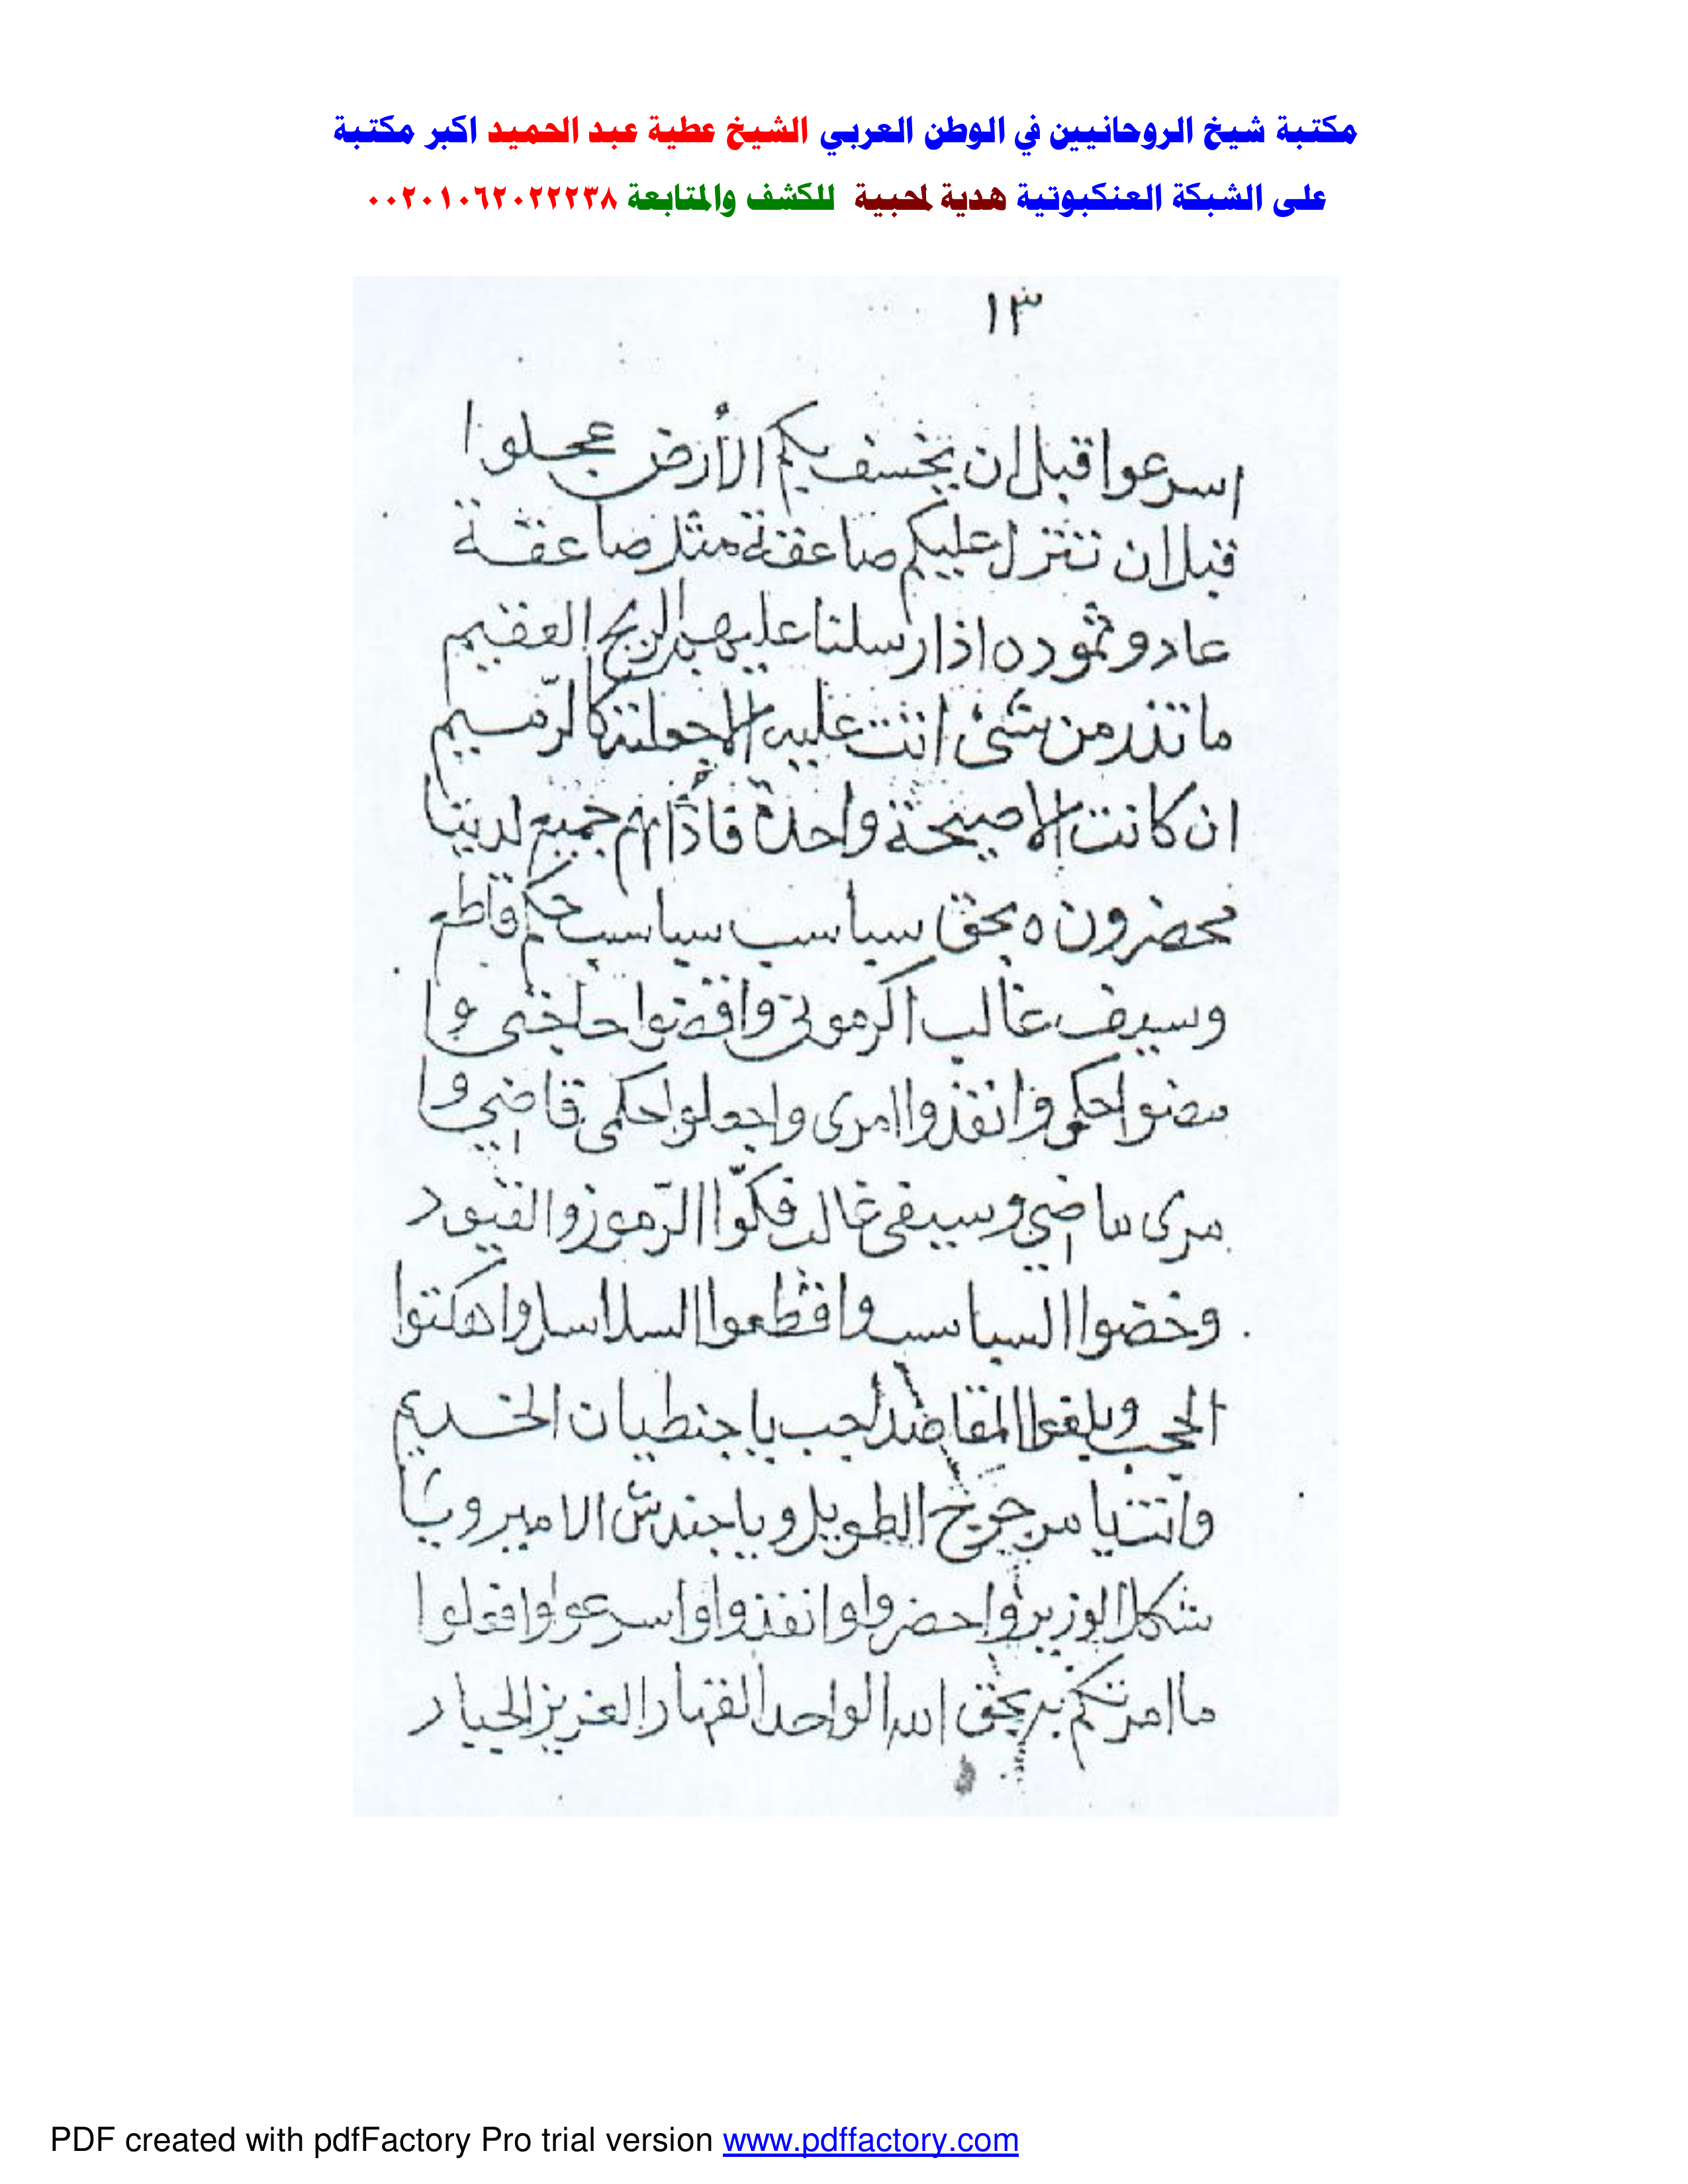 مكتبة شيخ الروحانيين في الوطن العربي الشيخ عطية عبد الحميد اكبر مكتبة
على الشبكة العنكبوتية هدية لمحبية للكشف والمتابعة ٠٠٢٠١٠٦٢٠٢٢٢٣٨
١٣
اسرعوا قبل ان يخسف بكم الأرض عجلوا
قبل ان تنزل عليكم صاعقة مثل صاعقة
عاد وثمود ه اذا رسلنا عليهم الريح العقيم
ما تذر من شئ اتت عليه الا جعلته كالرّميم
ان كانت الا صيحة واحدة فاذا هم جميع لدينا
محضرون ه بحق سباسب سباسب حكم قاطع
وسيف غالب اكرمونى واقضوا حاجتى وا
مضوا حكمى وانفذوا امرى واجعلوا حكمى قاضي وا
مرى ماضي وسيفى غالب فكّوا الرّموز والقيود
وخضوا السباسب واقطعوا السلاسل واهكتوا
الحجب وبلغوا المقاصد اجب يا جنطيان الخديم
وانت يا مرجوخ الطويل ويا جندش الامير ويا
شكل الوزير واحضروا وانفذوا واسرعوا وافعلوا
ما امرتكم به بحق الله الواحد القهار العزيز الجبار
PDF created with pdfFactory Pro trial version www.pdffactory.com